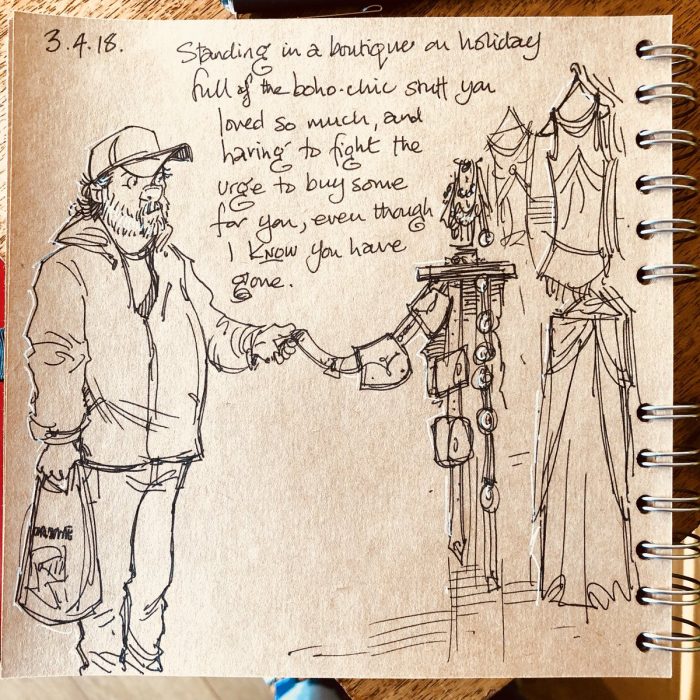 3.4.18.
Standing in a boutique on holiday
full of the boho-chic stuff you
loved so much, and
having to fight the
urge to buy some
for you, even though
I KNOW you have
gone.